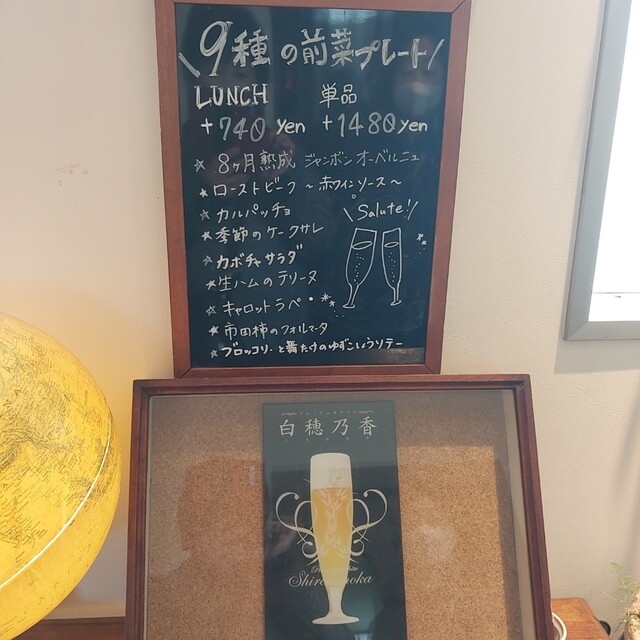 \9種の前菜プレート/
LUNCH 単品
+740yen +1480yen
☆ 8ヶ月熟成 ジャンボンオーベルニュ
★ ローストビーフ ～赤ワインソース～
☆ カルパッチョ
\Salute!/
★ 季節のケークサレ
☆ カボチャサラダ
★ 生ハムのテリーヌ
☆ キャロットラペ
★ 市田柿のフォルマータ
★ ブロッコリーと舞たけのゆずこしょうソテー
白穂乃香